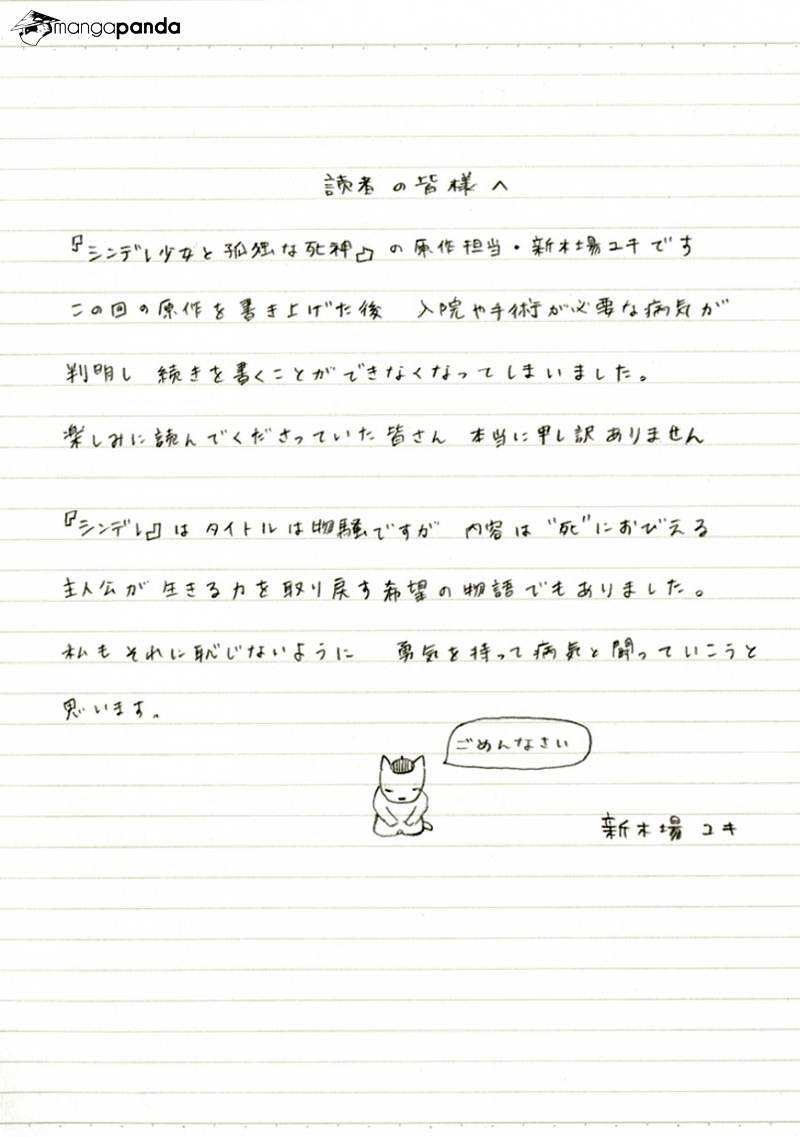 mangapanda
読者の皆様へ
『シンデレ少女と孤独な死神』の原作担当・新木場ユキです
この回の原作を書き上げた後 入院や手術が必要な病気が
判明し 続きを書くことができなくなってしまいました。
楽しみに読んでくださっていた皆さん 本当に申し訳ありません
『シンデレ』はタイトルは物騒ですが 内容は"死"におびえる
主人公が生きる力を取り戻す希望の物語でもありました。
私もそれに恥じないように 勇気を持って病気と闘っていこうと
思います。
ごめんなさい
新木場ユキ